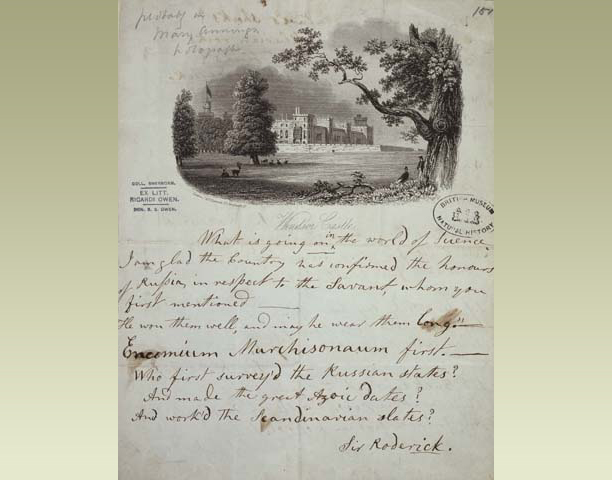 probably in
Mary Anning's
holograph
COLL. SHERBORN.
EX LITT.
RICARDI OWEN.
DON. R. S. OWEN.
BRITISH MUSEUM
NATURAL HISTORY
Windsor Castle
What is going on in the world of Science,
I am glad the Country has confirmed the honours
of Russia, in respect to the Savant, whom you
first mentioned
He won them well, and may he wear them long"
Encomium Murchisonaum first.
Who first survey'd the Russian states?
And made the great Azoic dates?
And work'd the Scandinavian slates?
Sir Roderick.